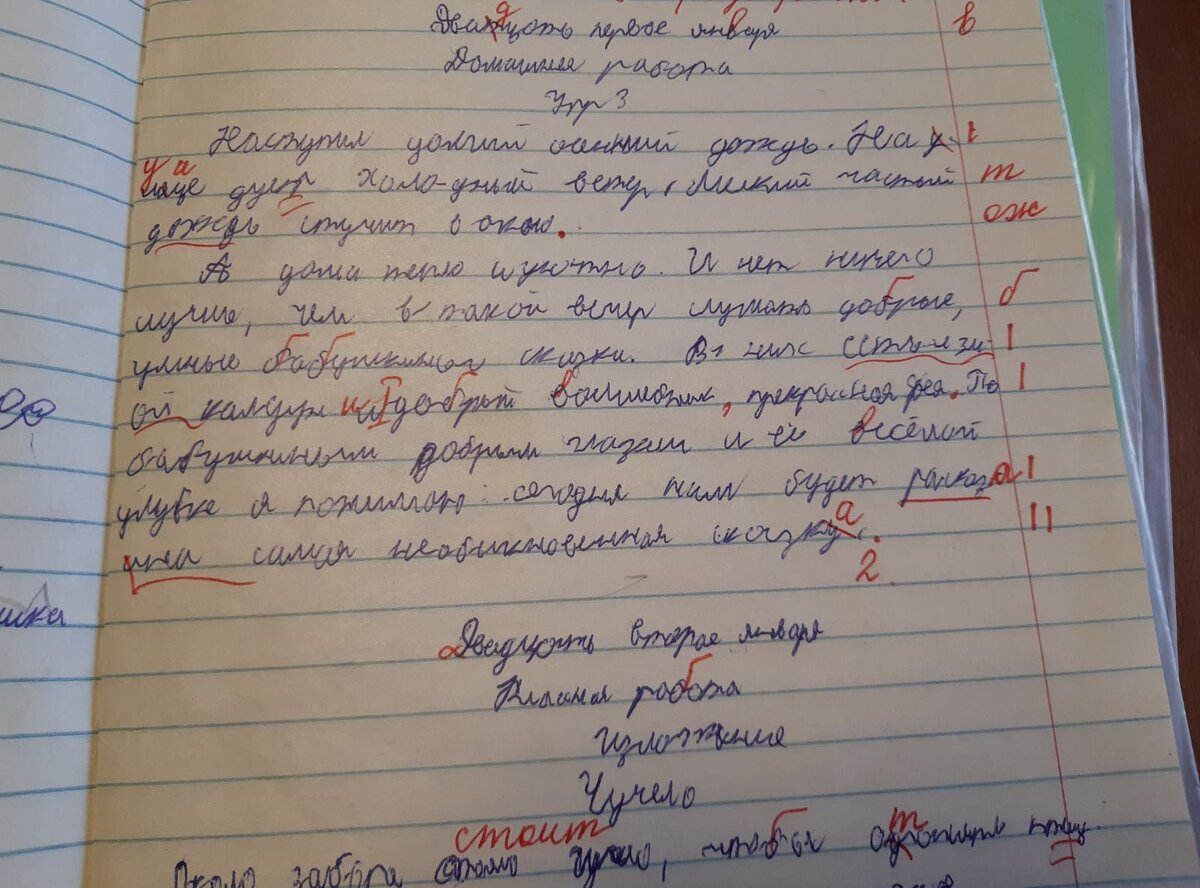 Двадцать первое января в
Домашняя работа
Упр 3
Наступил долгий осенний дождь. На у 1
лице дует холодный ветер. Мелкий частый т
дождь стучит в окно. ож
А дома тепло и уютно. И нет ничего
лучше, чем в такой вечер слушать добрые, б
умные бабушкины сказки. В них есть и зл 1
ой колдун и добрый волшебник, прекрасная фея. По 1
бабушкиным добрым глазам и её весёлой
улыбке я понимаю: сегодня нам будет расказа 1
на самая необыкновенная сказка. 11
2.
шка
Двадцать второе января
Класная работа
Изложение
Чучело
стоит
Около забора чучело, чтобы отгонять птиц.